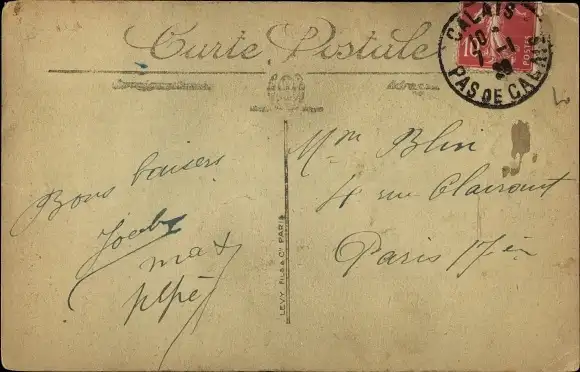 Carte Postale
Correspondance
Adresse
CALAIS
7 -1
PAS DE CALAIS
10
POSTES
Bons baisers
max
pepé
LEVY FILS & Cie PARIS
Mme Blin
4 rue Clairaut
Paris 17 èm